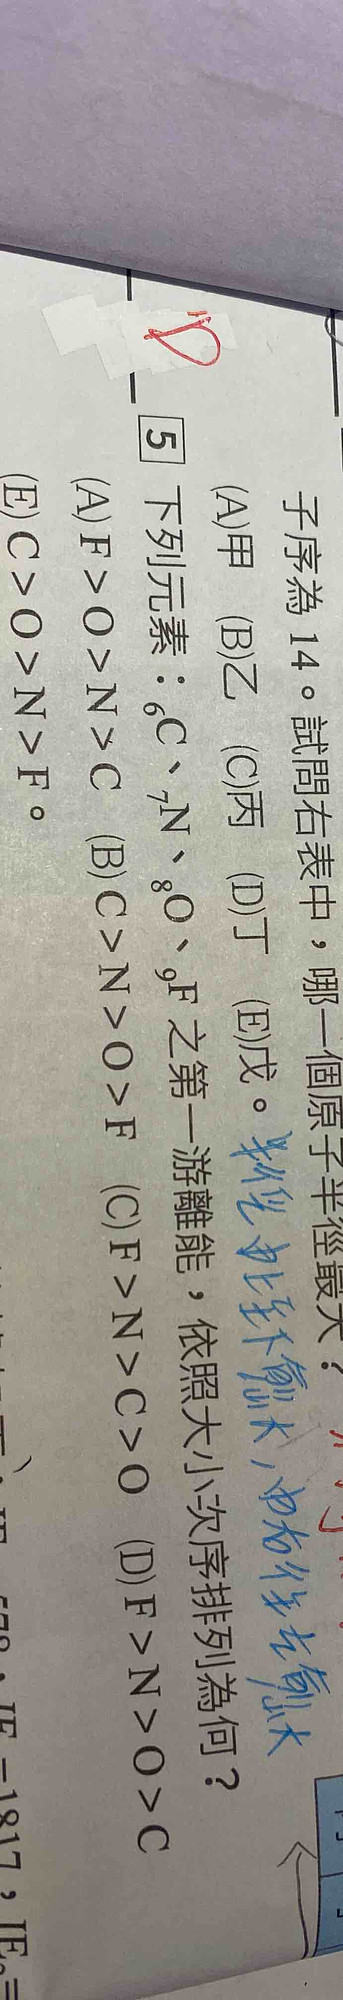 子序為 14。試問右表中，哪一個原子半徑最大？
(A)甲 (B)乙 (C)丙 (D)丁 (E)戊。半徑由上至下漸大，由右往左漸大
D
5 下列元素：₆C、₇N、₈O、₉F 之第一游離能，依照大小次序排列為何？
(A) F＞O＞N＞C (B) C＞N＞O＞F (C) F＞N＞C＞O (D) F＞N＞O＞C
(E) C＞O＞N＞F。
=1817，IE